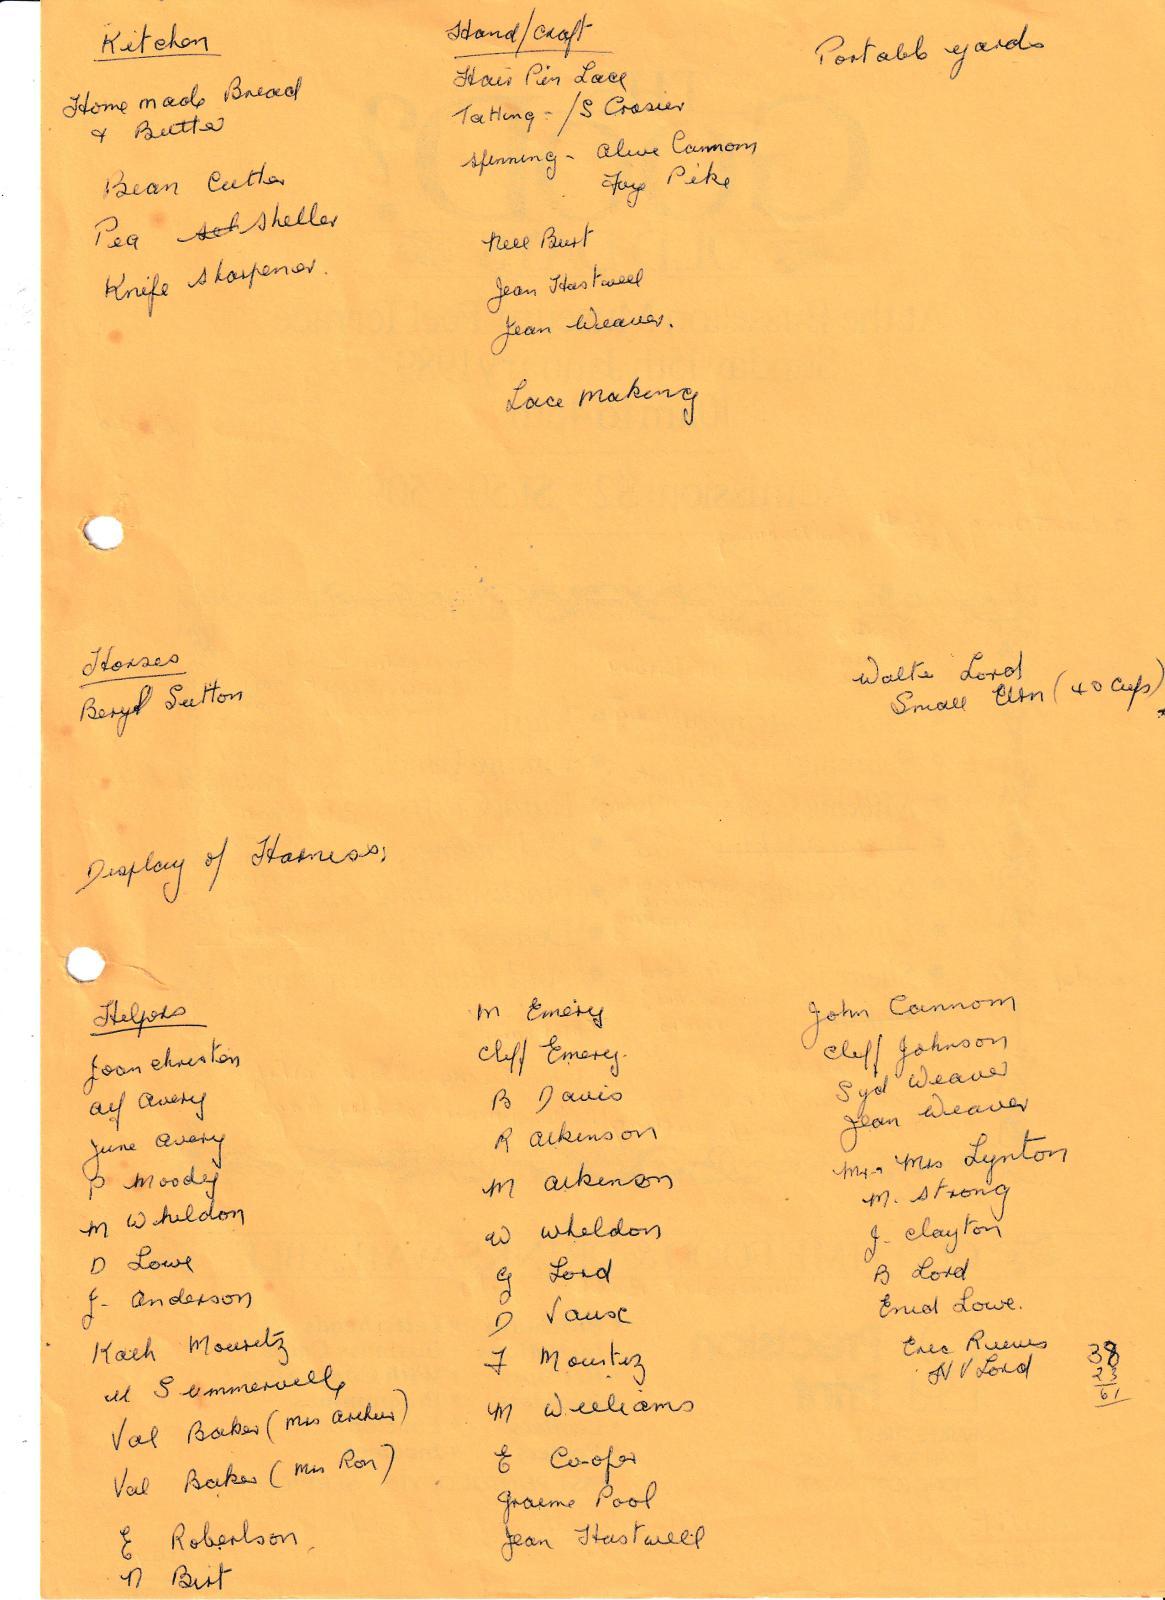 Kitchen
Home made Bread
& Butter
Bean Cutter
Pea sheller
Knife sharpener.
Hand/craft
Hair Pin Lace
Tatting - /S Crosier
spinning - Alive Cannom
Faye Pike
Nell Burt
Jean Hastwell
Jean Weaver.
Lace making
Portable yards
Horses
Beryl Sutton
Walte Lord
Small Urn (40 cups)
Display of Harness,
Helpers
Joan Christen
Alf Avery
June Avery
P Moodey
M Wheldon
D Lowe
J. Anderson
Kath Mouritz
M Summerville
Val Baker (Mrs Arthur)
Val Baker (Mrs Ron)
E Robertson
N Birt
M Emery
Cliff Emery.
B Davis
R Atkinson
M Atkinson
W Wheldon
G Lord
D Vause
F Mouritz
M Williams
E Cooper
Graeme Pool
Jean Hastwell
John Cannom
Cliff Johnson
Syd Weaver
Jean Weaver
Mr & Mrs Lynton
M. Strong
J. Clayton
B Lord
Enid Lowe.
Eric
N V Lord
38
23
61